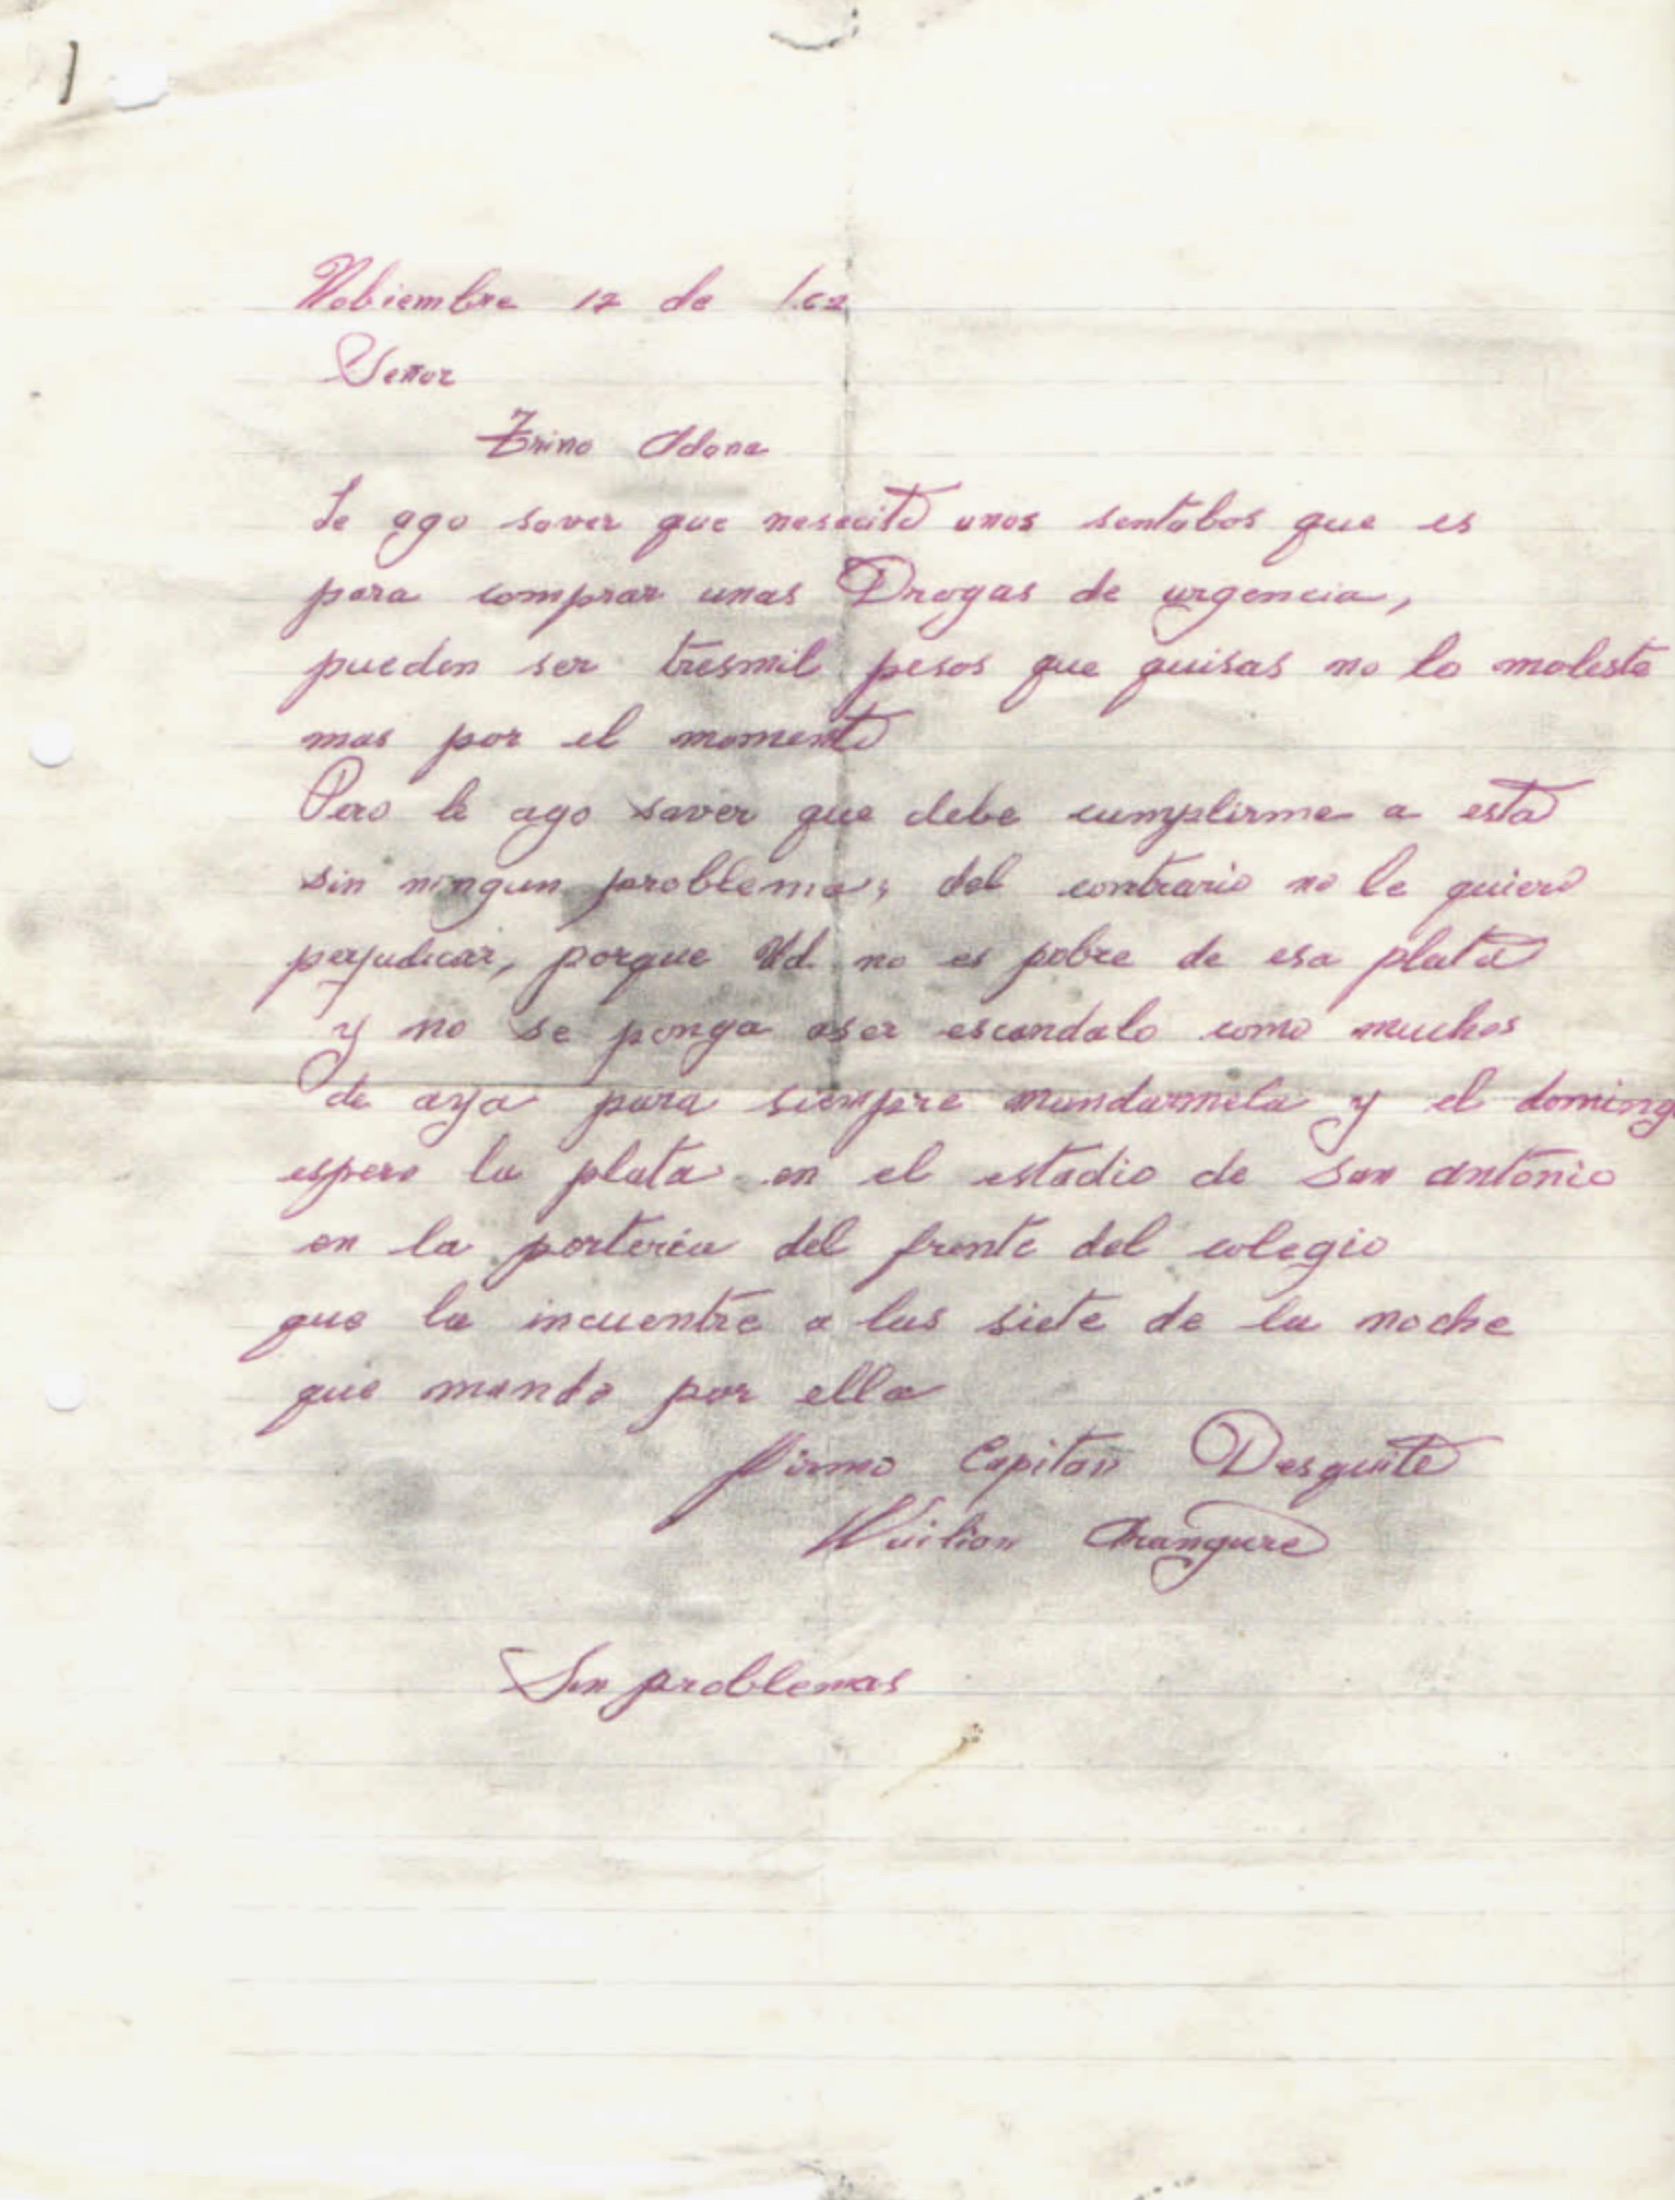 1
Nobiembre 12 de 1.62
Señor
Trino Adone
Le ago saver que nesecito unos sentabos que es
para comprar unas Drogas de urgencia,
pueden ser tresmil pesos que quisas no lo moleste
mas por el momento
Pero le ago saver que debe cumplirme a esta
sin ningun problema, del contrario no le quiero
perjudicar, porque Ud. no es pobre de esa plata
y no se ponga aser escandalo como muchos
de aya para siempre mandarmela y el doming
espero la plata en el estadio de San antonio
en la porteria del frente del colegio
que la incuentre a las siete de la noche
que mando por ella
Firmo Capitan Desquite
Wuilian Arangure
Sin problemas